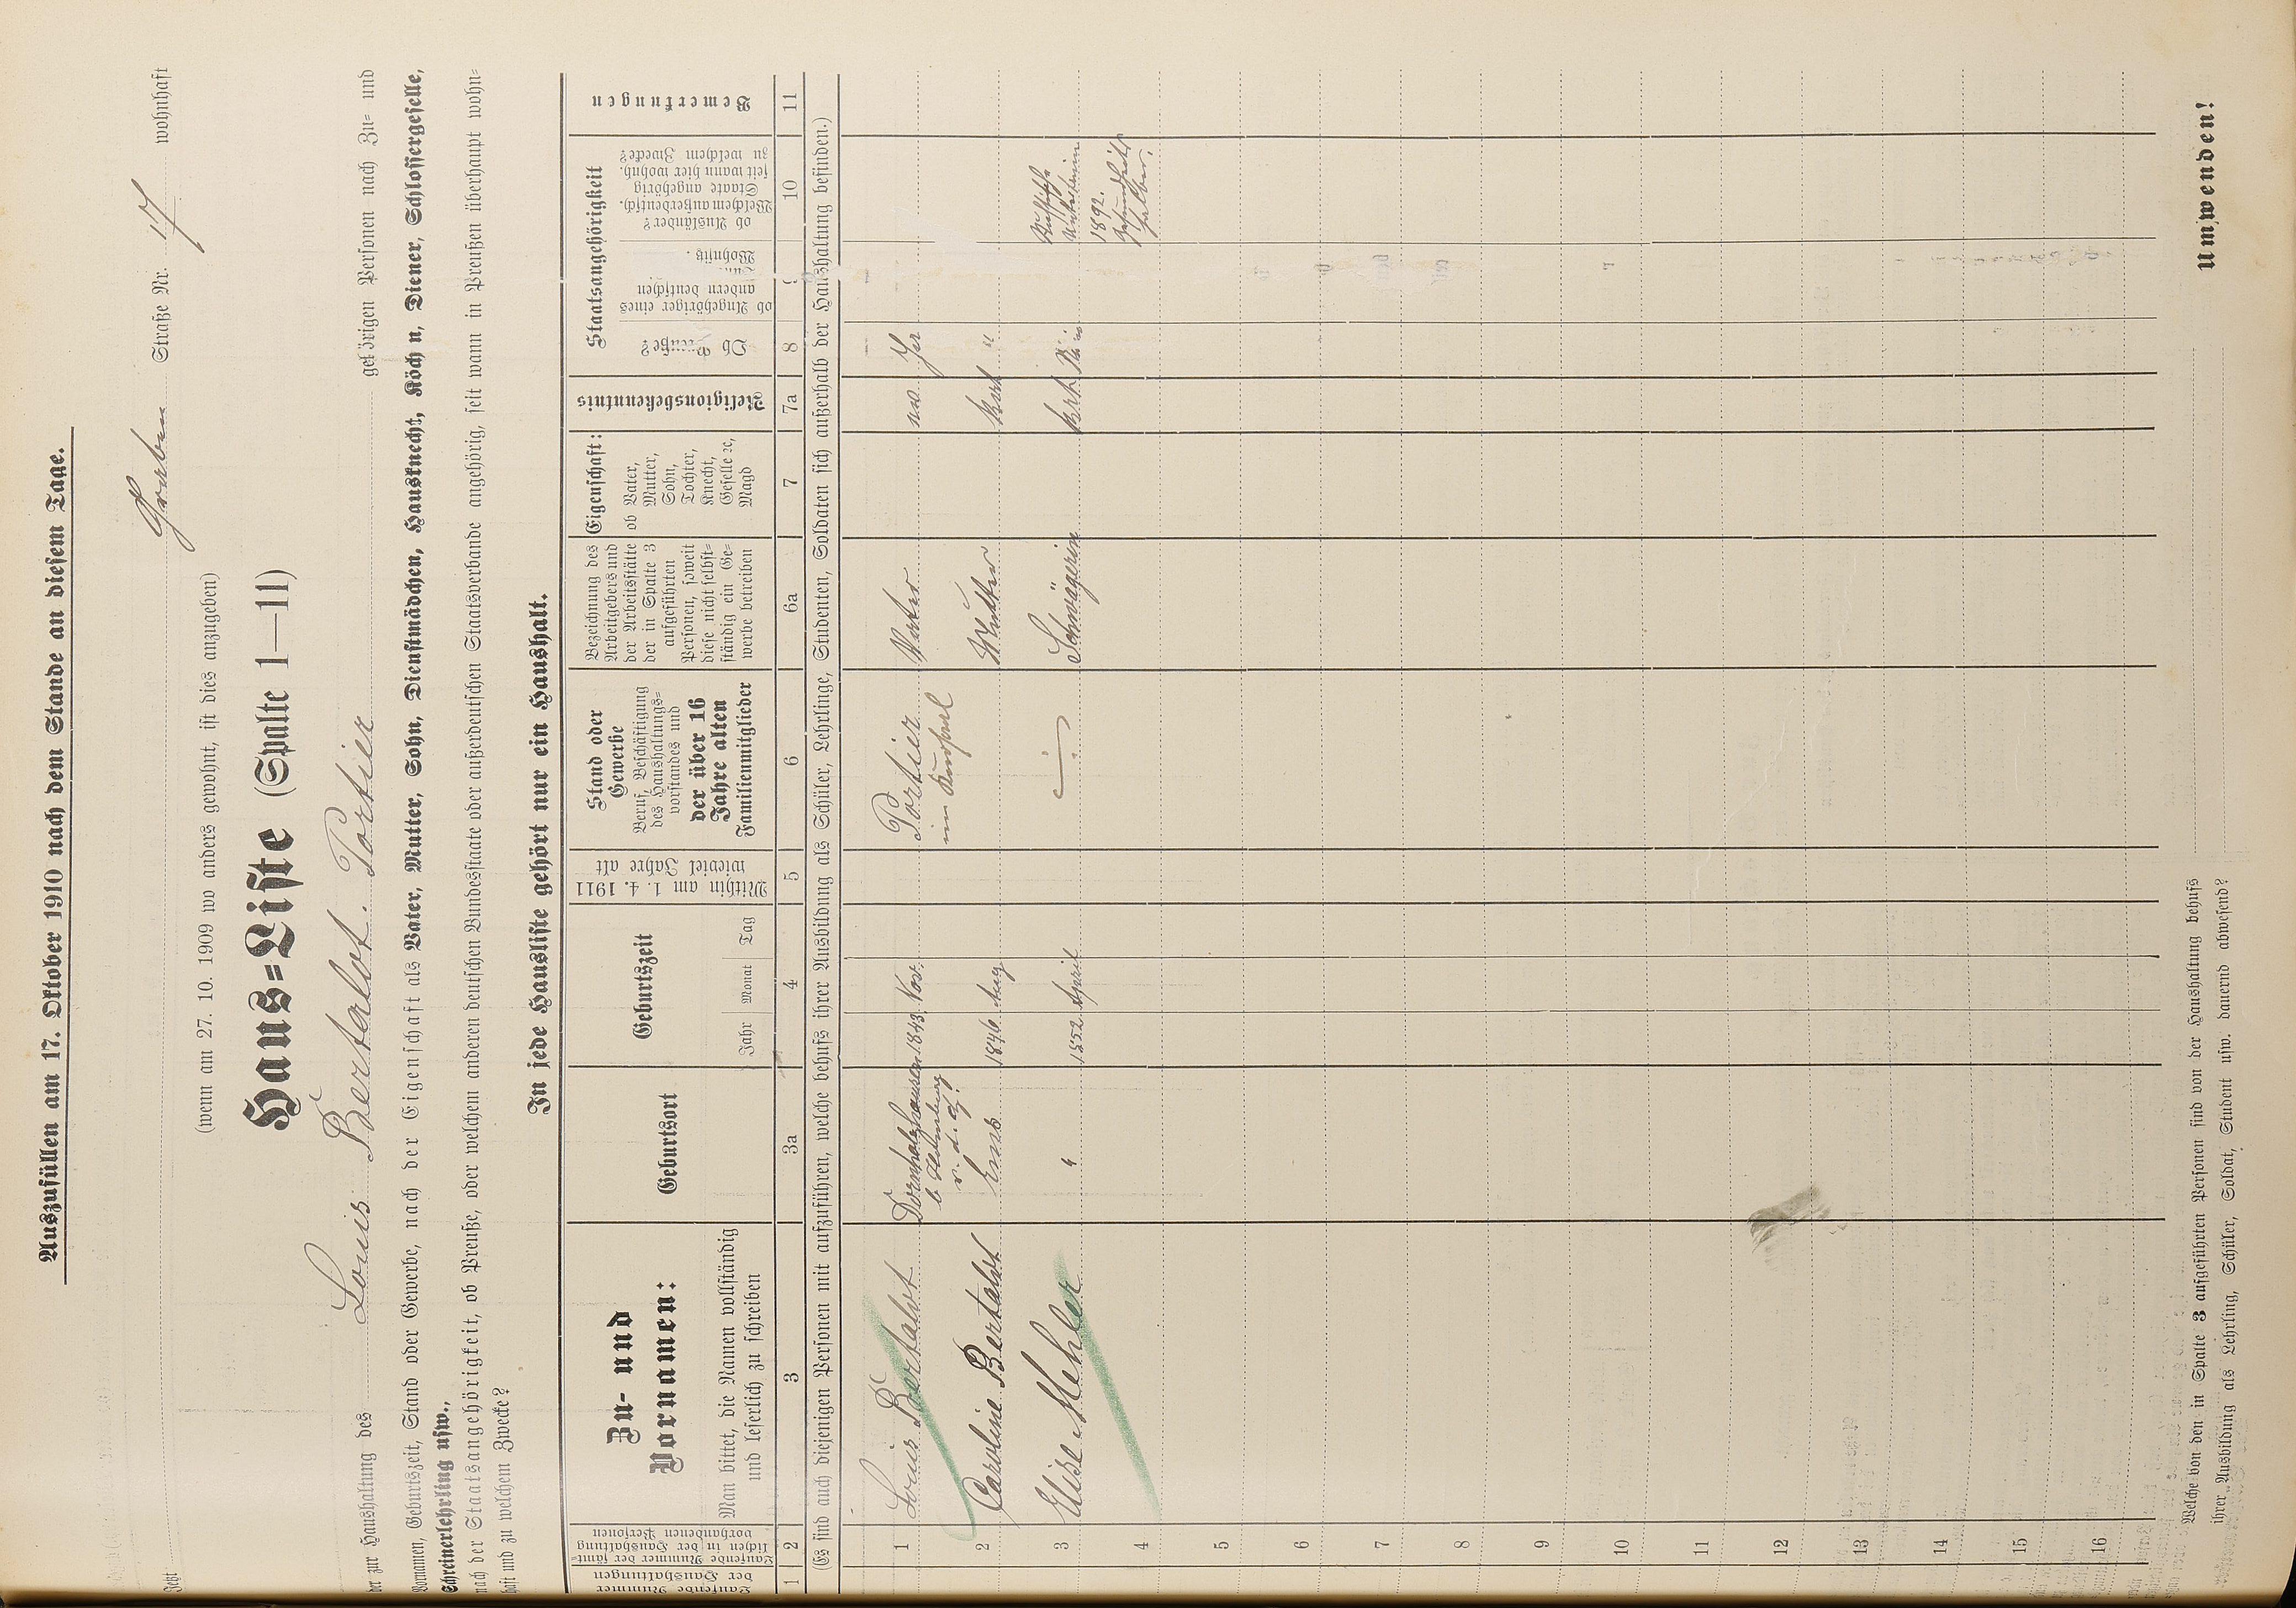 Auszufüllen am 17. Oktober 1910 nach dem Stande an diesem Tage.
Jetzt Graben Straße Nr. 17 wohnhaft
(wenn am 27. 10. 1909 wo anders gewohnt, ist dies anzugeben)
Haus=Liste (Spalte 1—11)
der zur Haushaltung des Louis Bertalot. Portier gehörigen Personen nach Zu= und
Vornamen, Geburtszeit, Stand oder Gewerbe, nach der Eigenschaft als Vater, Mutter, Sohn, Dienstmädchen, Hausknecht, Köchin, Diener, Schlossergeselle,
Schreinerlehrling usw.,
nach der Staatsangehörigkeit, ob Preuße, oder welchem anderen deutschen Bundesstaate oder außerdeutschen Staatsverbande angehörig, seit wann in Preußen überhaupt wohn=
haft und zu welchem Zwecke?
In jede Hausliste gehört nur ein Haushalt.
Laufende Nummer
der Haushaltungen
Laufende Nummer der sämt=
lichen in der Haushaltung
vorhandenen Personen
Zu- und
Vornamen:
Man bittet, die Namen vollständig
und leserlich zu schreiben
Geburtsort
Geburtszeit
Jahr Monat Tag
Mithin am 1. 4. 1911
wieviel Jahre alt
Stand oder
Gewerbe
Beruf, Beschäftigung
des Haushaltungs=
vorstandes und
der über 16
Jahre alten
Familienmitglieder
Bezeichnung des
Arbeitgebers und
der Arbeitsstätte
der in Spalte 3
aufgeführten
Personen, soweit
diese nicht selbst=
ständig ein Ge=
werbe betreiben
Eigenschaft:
ob Vater,
Mutter,
Sohn,
Tochter,
Knecht,
Geselle ꝛc,
Magd
Religionsbekenntnis
Staatsangehörigkeit
Ob Preuße?
ob Angehöriger eines
andern deutschen
Wohnsitz.
ob Ausländer?
Welchem außerdeutsch.
Staate angehörig
seit wann hier wohnh.
zu welchem Zwecke?
Bemerkungen
1 2 3 3a 4 5 6 6a 7 7a 8 10 11
(Es sind auch diejenigen Personen mit aufzuführen, welche behufs ihrer Ausbildung als Schüler, Lehrlinge, Studenten, Soldaten sich außerhalb der Haushaltung befinden.)
1 Louis Bertalot Dornholzhausen 1843 Nov. Portier Vater Ja
b. Homburg im Kursaal
v. d. H.
2 Caroline Bertalot Ems 1846 Aug Mutter kath "
3 Elise Mehler " 1852 April Schwägerin kath.
1892.
4
5
6
7
8
9
10
11
12
13
14
15
16
Welche von den in Spalte 3 aufgeführten Personen sind von der Haushaltung behufs
ihrer Ausbildung als Lehrling, Schüler, Soldat, Student usw. dauernd abwesend?
Umwenden!